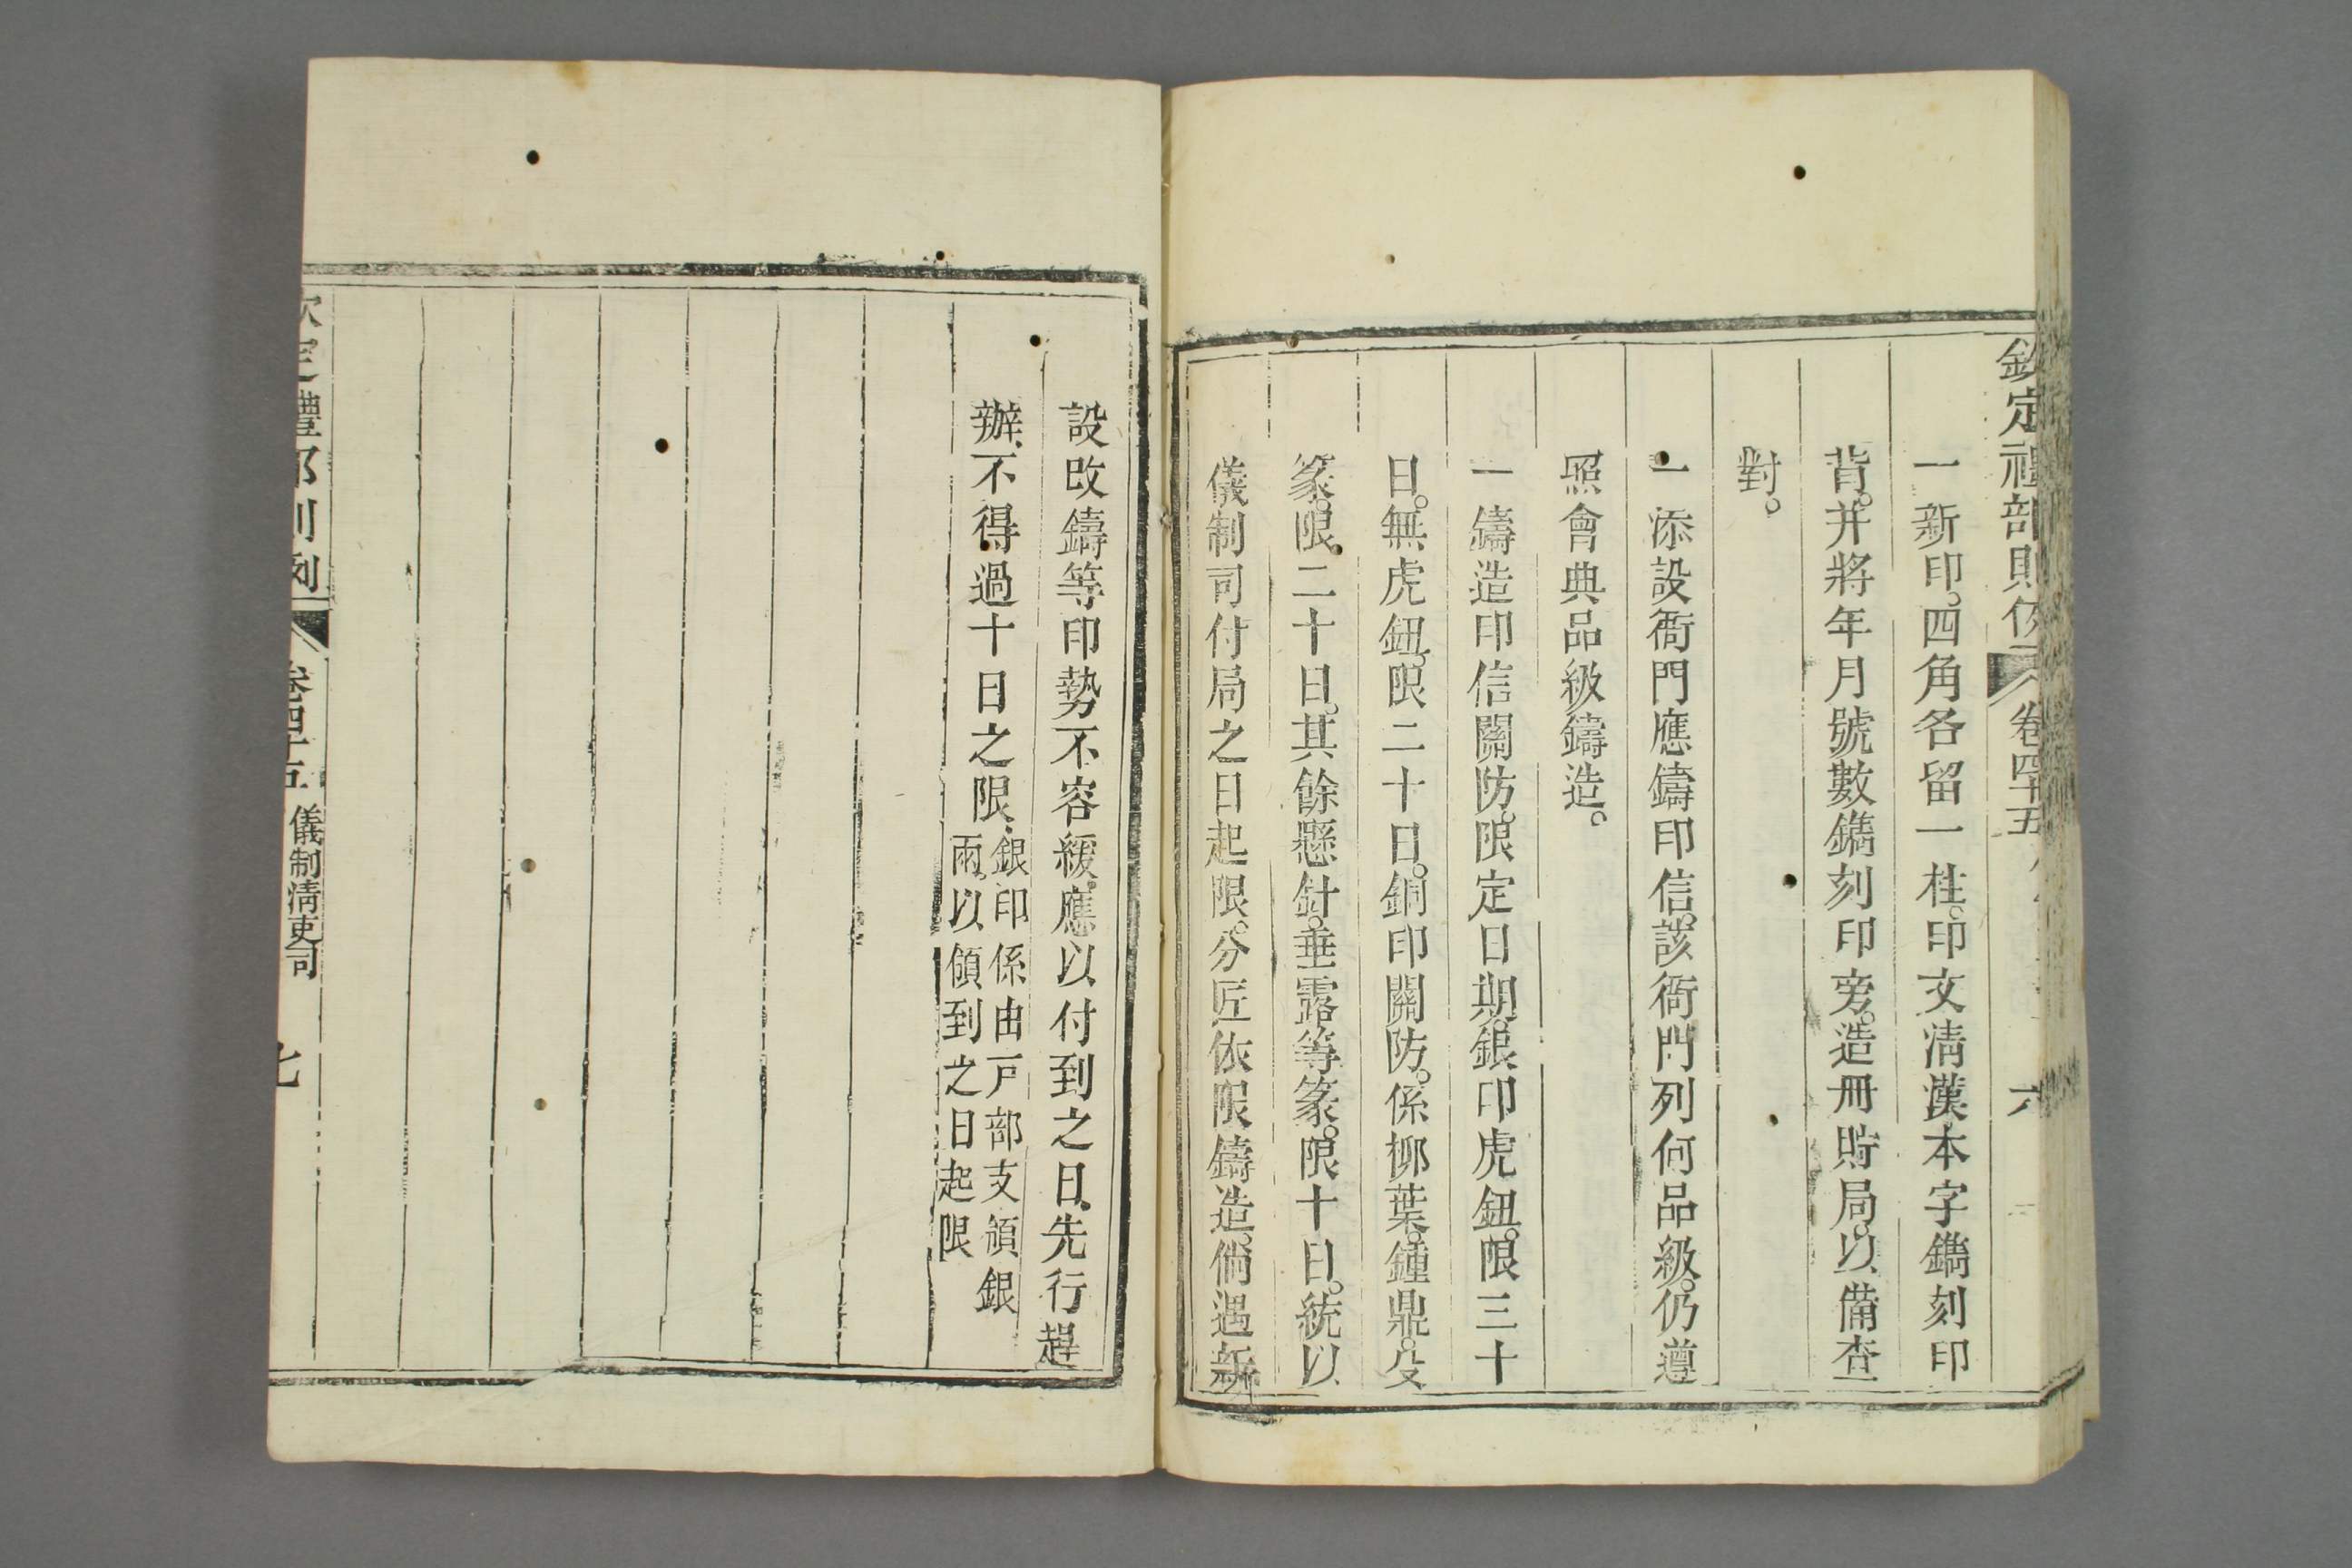 欽定禮部則例 卷四十五 六
一新印。四角各留一柱。印文清漢本字鐫刻印
背。并將年月號數鐫刻印旁。造冊貯局。以備查
對。
一添設衙門應鑄印信。該衙門列何品級。仍遵
照會典品級鑄造。
一鑄造印信關防。限定日期。銀印虎鈕。限三十
日。無虎鈕。限二十日。銅印關防。係柳葉。鍾鼎。殳
篆。限二十日。其餘懸針。垂露等篆。限十日。統以
儀制司付局之日起限。分匠依限鑄造。倘遇新
設改鑄等印勢不容緩。應以付到之日。先行趕
辦。不得過十日之限。
銀印係由戸部支領銀
兩。以領到之日起限
欽定禮部則例 卷四十五 儀制清吏司 七